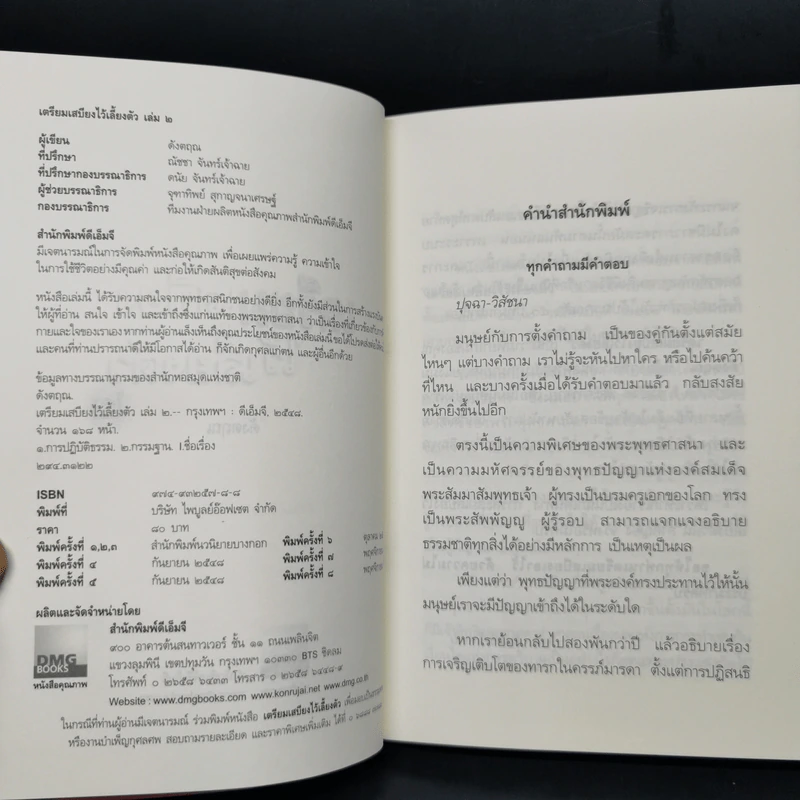 เตรียมเสบียงไว้เลี้ยงตัว เล่ม ๒
ผู้เขียน ดังตฤณ
ที่ปรึกษา ณัชชา จันทร์เจ้าฉาย
ที่ปรึกษากองบรรณาธิการ ดนัย จันทร์เจ้าฉาย
ผู้ช่วยบรรณาธิการ จุฑาทิพย์ สุกาญจนาเศรษฐ์
กองบรรณาธิการ ทีมงานฝ่ายผลิตหนังสือคุณภาพสำนักพิมพ์ดีเอ็มจี
สำนักพิมพ์ดีเอ็มจี
มีเจตนารมณ์ในการจัดพิมพ์หนังสือคุณภาพ เพื่อเผยแพร่ความรู้ ความเข้าใจ
ในการใช้ชีวิตอย่างมีคุณค่า และก่อให้เกิดสันติสุขต่อสังคม
หนังสือเล่มนี้ ได้รับความสนใจจากพุทธศาสนิกชนอย่างดียิ่ง อีกทั้งยังมีส่วนในการสร้าง
ให้ผู้ที่อ่าน สนใจ เข้าใจ และเข้าถึงซึ่งแก่นแท้ของพระพุทธศาสนา ว่าเป็นเรื่องที่เกี่ยวข้องกับ
กายและใจของเราเอง หากท่านผู้อ่านเล็งเห็นถึงคุณประโยชน์ของหนังสือเล่มนี้ ขอได้โปรดส่งต่อ
และคนที่ท่านปรารถนาดีให้มีโอกาสได้อ่าน ก็จักเกิดกุศลแก่ตน และผู้อื่นอีกด้วย
ข้อมูลทางบรรณานุกรมของสำนักหอสมุดแห่งชาติ
ดังตฤณ.
เตรียมเสบียงไว้เลี้ยงตัว เล่ม ๒.-- กรุงเทพฯ : ดีเอ็มจี, ๒๕๔๘.
จำนวน ๑๖๘ หน้า.
๑.การปฏิบัติธรรม. ๒.กรรมฐาน. I.ชื่อเรื่อง
๒๙๔.๓๑๒๒
ISBN ๙๗๔-๙๓๒๕๗-๘-๘
พิมพ์ที่ บริษัท ไพบูลย์อ๊อฟเซต จำกัด
ราคา ๘๐ บาท
พิมพ์ครั้งที่ ๑,๒,๓ สำนักพิมพ์นวนิยายบางกอก พิมพ์ครั้งที่ ๖
พิมพ์ครั้งที่ ๔ กันยายน ๒๕๔๘ พิมพ์ครั้งที่ ๗
พิมพ์ครั้งที่ ๕ กันยายน ๒๕๔๘ พิมพ์ครั้งที่ ๘
ผลิตและจัดจำหน่ายโดย
DMG
BOOKS
หนังสือคุณภาพ
สำนักพิมพ์ดีเอ็มจี
๙๐๐ อาคารต้นสนทาวเวอร์ ชั้น ๑๑ ถนนเพลินจิต
แขวงลุมพินี เขตปทุมวัน กรุงเทพฯ ๑๐๓๓๐ BTS ชิดลม
โทรศัพท์ ๐ ๒๖๕๘ ๖๔๓๓ โทรสาร ๐ ๒๖๕๘ ๖๔๔๘-๙
Website : www.dmgbooks.com www.konrujai.net www.dmg.co.th
ในกรณีที่ท่านผู้อ่านมีเจตนารมณ์ ร่วมพิมพ์หนังสือ เตรียมเสบียงไว้เลี้ยงตัว
หรืองานบำเพ็ญกุศลศพ สอบถามรายละเอียด และราคาพิเศษเพิ่มเติม ได้ที่
คำนำสำนักพิมพ์
ทุกคำถามมีคำตอบ
ปุจฉา-วิสัชนา
มนุษย์กับการตั้งคำถาม เป็นของคู่กันตั้งแต่สมัย
ไหนๆ แต่บางคำถาม เราไม่รู้จะหันไปหาใคร หรือไปค้นคว้า
ที่ไหน และบางครั้งเมื่อได้รับคำตอบมาแล้ว กลับสงสัย
หนักยิ่งขึ้นไปอีก
ตรงนี้เป็นความพิเศษของพระพุทธศาสนา และ
เป็นความมหัศจรรย์ของพุทธปัญญาแห่งองค์สมเด็จ
พระสัมมาสัมพุทธเจ้า ผู้ทรงเป็นบรมครูเอกของโลก ทรง
เป็นพระสัพพัญญู ผู้รู้รอบ สามารถแจกแจงอธิบาย
ธรรมชาติทุกสิ่งได้อย่างมีหลักการ เป็นเหตุเป็นผล
เพียงแต่ว่า พุทธปัญญาที่พระองค์ทรงประทานไว้ให้นั้น
มนุษย์เราจะมีปัญญาเข้าถึงได้ในระดับใด
หากเราย้อนกลับไปสองพันกว่าปี แล้วอธิบายเรื่อง
การเจริญเติบโตของทารกในครรภ์มารดา ตั้งแต่การปฏิสนธิ